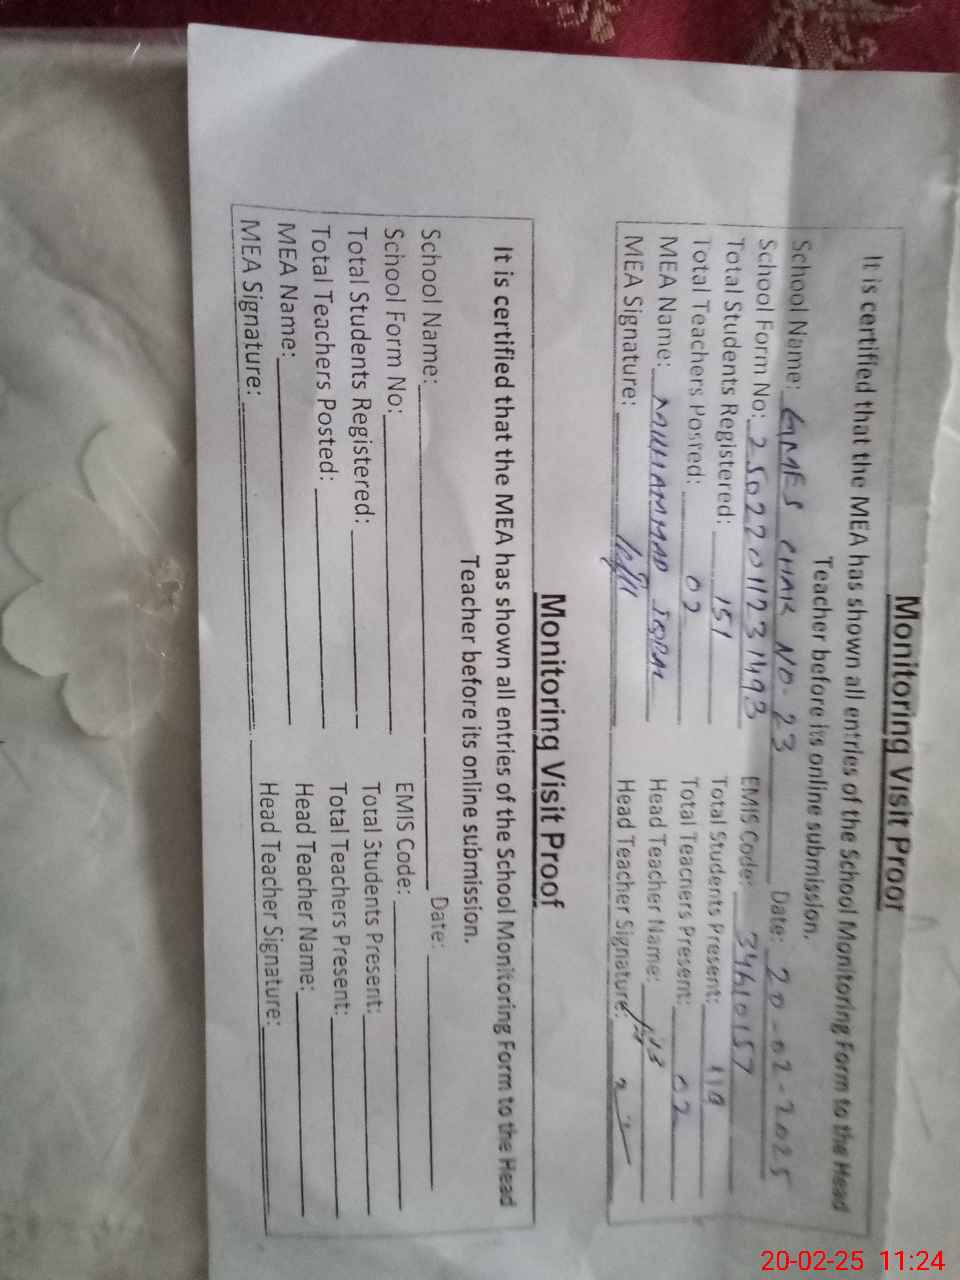 Monitoring Visit Proof
It is certified that the MEA has shown all entries of the School Monitoring Form to the Head
Teacher before its online submission.
School Name: GMES CHAK NO. 23 Date: 20-02-2025
School Form No: 25022011231493 EMIS Code: 34610157
Total Students Registered: 151 Total Students Present: 110
Total Teachers Posted: 02 Total Teachers Present: 02
MEA Name: MUHAMMAD IQBAL Head Teacher Name:
MEA Signature: Head Teacher Signature:
Monitoring Visit Proof
It is certified that the MEA has shown all entries of the School Monitoring Form to the Head
Teacher before its online submission.
School Name: Date:
School Form No: EMIS Code:
Total Students Registered: Total Students Present:
Total Teachers Posted: Total Teachers Present:
MEA Name: Head Teacher Name:
MEA Signature: Head Teacher Signature:
20-02-25 11:24